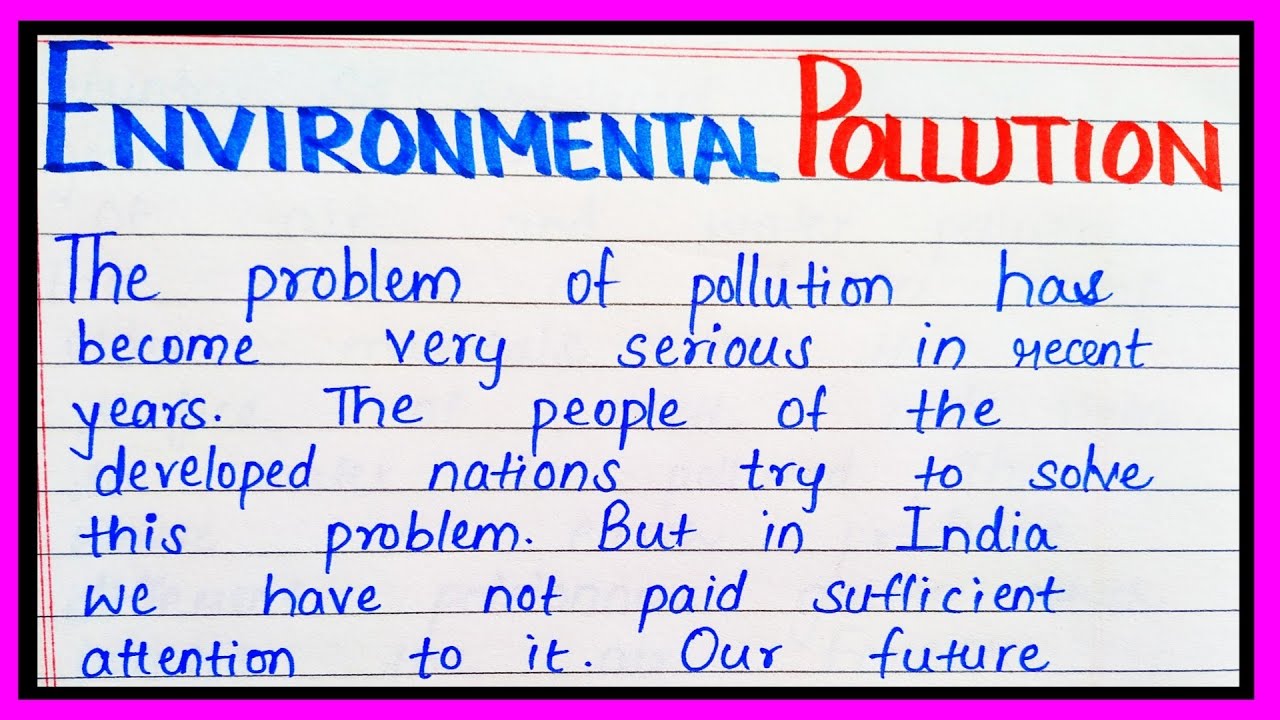 ENVIRONMENTAL POLLUTION
The problem of pollution has
become very serious in recent
years. The people of the
developed nations try to solve
this problem. But in India
we have not paid sufficient
attention to it. Our future